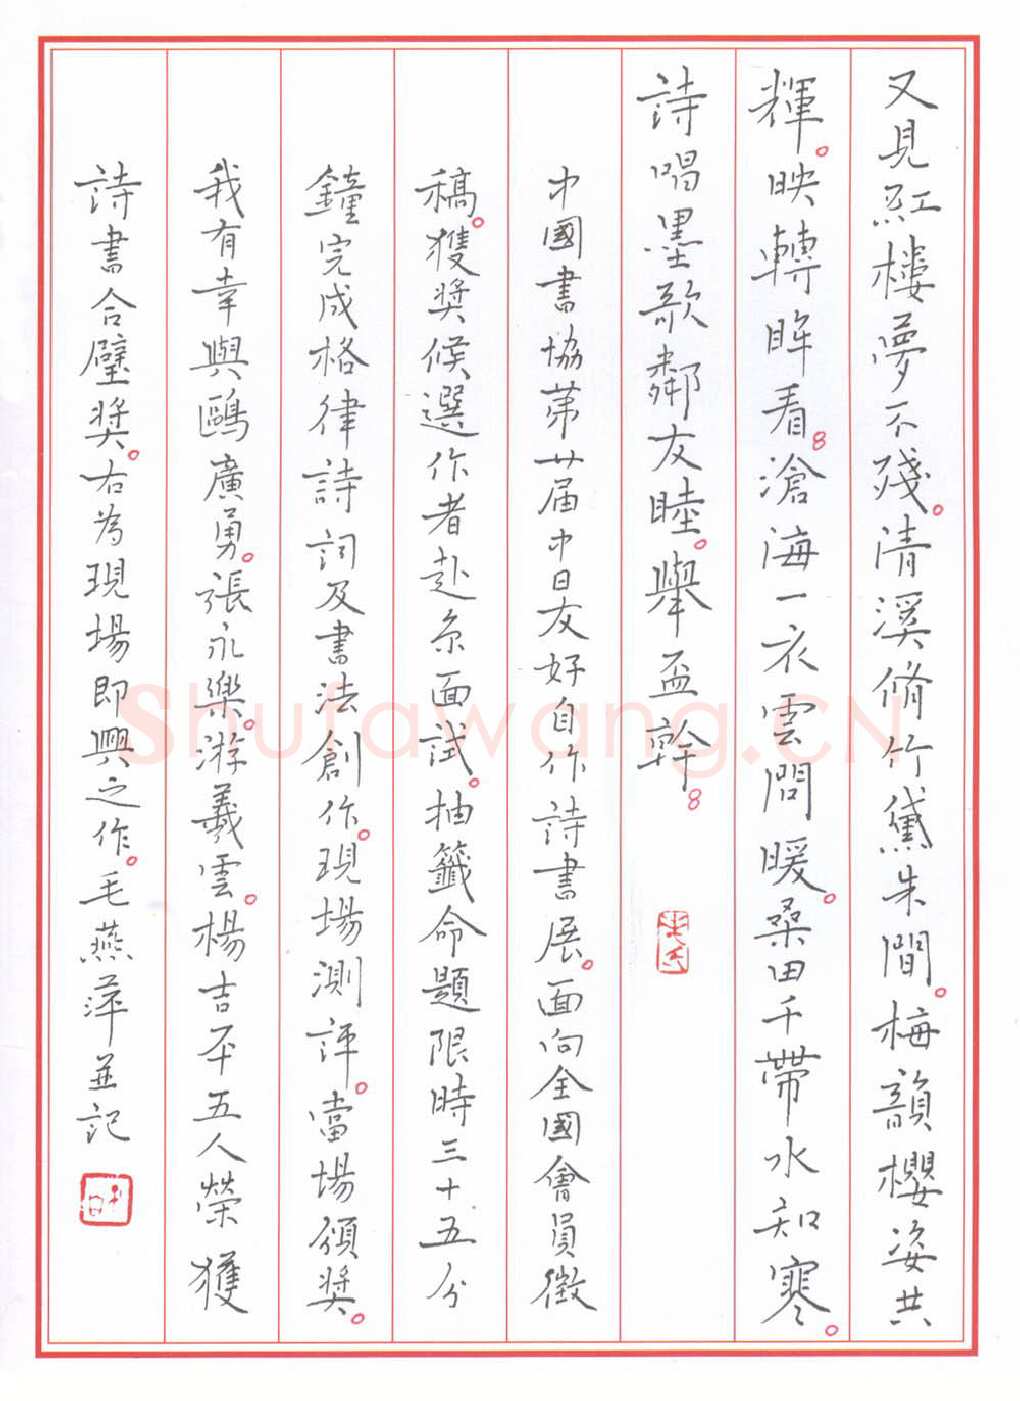 又見紅樓夢不殘。清溪脩竹黛朱間。梅韻櫻姿共
輝。映轉眸看。滄海一衣雲問暖。桑田千帶水知寒。
詩唱墨歌鄰友睦。舉盃幹。
中國書協第廿届中日友好自作詩書展。面向全國會員徵
稿。獲奖候選作者赴京面試。抽籤命題限時三十五分
鐘完成格律詩詞及書法創作。現場測評。當場頒奖。
我有幸與鷗廣勇。張永樂。游義雲。楊吉平五人榮獲
詩書合璧奖。右為現場即興之作。毛燕萍並記
Shufawang.CN